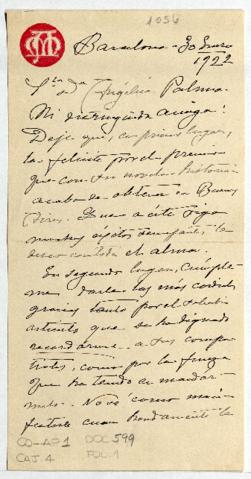 1056
Barcelona - 30 Enero
1922
Sta. Da. Angélica Palma.
Mi distinguida amiga:
Deje que, en primer lugar,
la felicite por el premio
que con su novela historica
acaba de obtener en Buenos
Aires. Que a éste siga
muchos éxitos semejantes, le
deseo con toda el alma.
En segundo lugar, cúmple
me darle las más cordiales
gracias tanto por el
artículo que se ha dignado
recordarme a sus compa
triotas, como por la fineza
que ha tenido en mandar
melo. No sé como mani
festarle cuan hondamente la
CO-AP1 DOC 599
CAJ. 4 FOL. 1